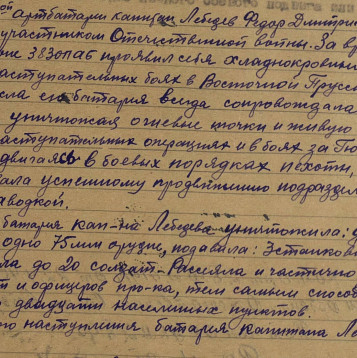 ой артбатареи капитан Лебедев Федор Дмитрие
участником Отечественной войны. За вр
не 383 ОПАБ проявил себя хладнокровны
аступательных боях в Восточной Прусси
сла его батарея всегда сопровождала
уничтожая огневые точки и живую
аступательных операциях и в боях за
двигаясь в боевых порядках пехоты,
вала успешному продвижению подраздел
аводкой.
батарея кап-на Лебедева уничтожила:
одно 75 мм орудие, подавила: 3 станков
ла до 20 солдат. Рассеяла и частично
т и офицеров пр-ка, тем самым способ
двадцати населенных пунктов.
го наступления батарея капитана Ле